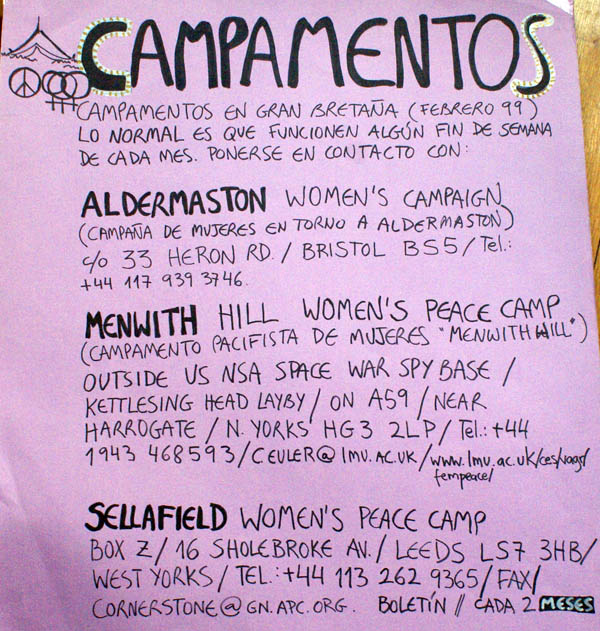 CAMPAMENTOS
CAMPAMENTOS EN GRAN BRETAÑA (FEBRERO 99)
LO NORMAL ES QUE FUNCIONEN ALGÚN FIN DE SEMANA
DE CADA MES. PONERSE EN CONTACTO CON:
ALDERMASTON WOMEN'S CAMPAIGN
(CAMPAÑA DE MUJERES EN TORNO A ALDERMASTON)
c/o 33 HERON RD. / BRISTOL BS5 / Tel.:
+44 117 939 3746.
MENWITH HILL WOMEN'S PEACE CAMP
(CAMPAMENTO PACIFISTA DE MUJERES "MENWITH HILL")
OUTSIDE US NSA SPACE WAR SPY BASE /
KETTLESING HEAD LAYBY / ON A59 / NEAR
HARROGATE / N. YORKS HG3 2LP / Tel.: +44
1943 468593 / CEULER@LMU.AC.UK / www.lmu.ac.uk/ces/vags/
fempeace/
SELLAFIELD WOMEN'S PEACE CAMP
BOX Z / 16 SHOLEBROKE AV. / LEEDS LS7 3HB /
WEST YORKS / TEL.: +44 113 262 9365 / FAX /
CORNERSTONE@GN.APC.ORG. BOLETÍN // CADA 2 MESES